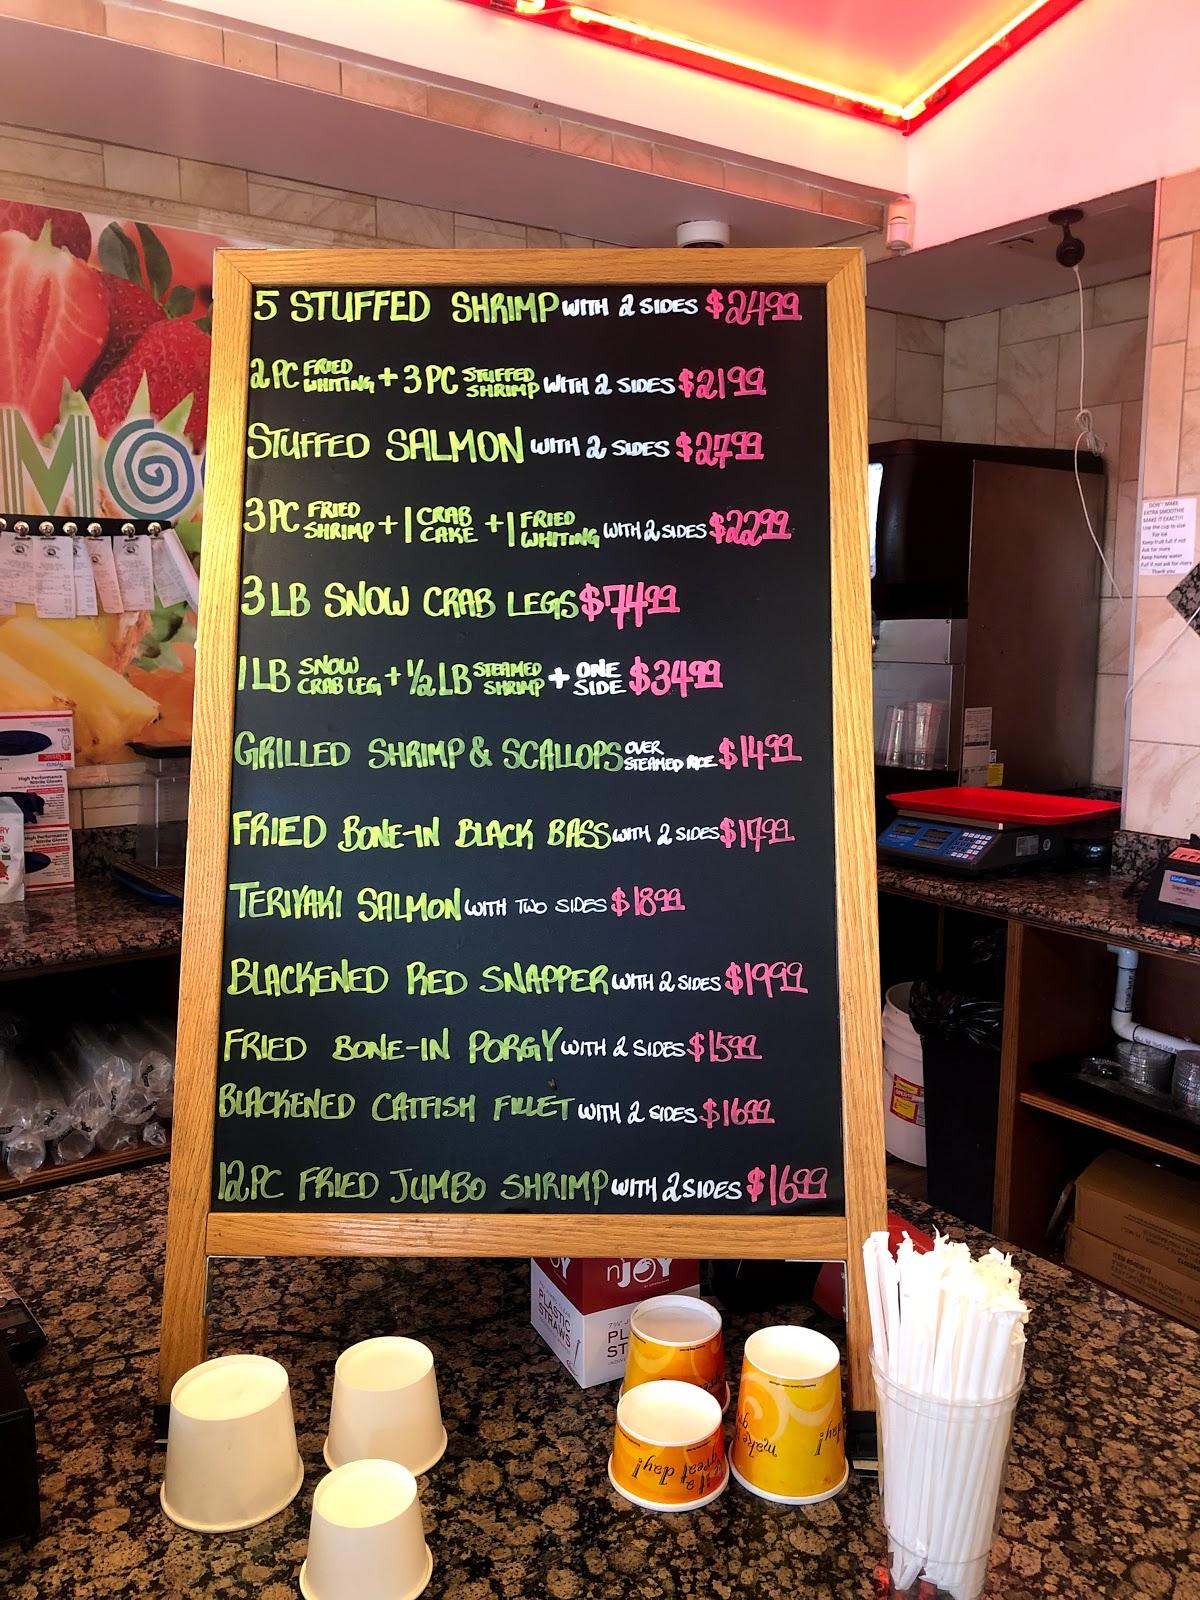 5 STUFFED SHRIMP WITH 2 SIDES $24.99
2 PC FRIED WHITING + 3 PC STUFFED SHRIMP WITH 2 SIDES $21.99
STUFFED SALMON WITH 2 SIDES $27.99
3 PC FRIED SHRIMP + 1 CRAB CAKE + 1 FRIED WHITING WITH 2 SIDES $22.99
3 LB SNOW CRAB LEGS $74.99
1 LB SNOW CRAB LEG + 1/2 LB STEAMED SHRIMP + ONE SIDE $34.99
GRILLED SHRIMP & SCALLOPS OVER STEAMED RICE $14.99
FRIED BONE-IN BLACK BASS WITH 2 SIDES $17.99
TERIYAKI SALMON WITH TWO SIDES $18.99
BLACKENED RED SNAPPER WITH 2 SIDES $19.99
FRIED BONE-IN PORGY WITH 2 SIDES $15.99
BLACKENED CATFISH FILLET WITH 2 SIDES $16.99
12 PC FRIED JUMBO SHRIMP WITH 2 SIDES $16.99
DON'T MAKE
EXTRA SMOOTHIE
MAKE IT EXACT!!!
Use the cup to use
For ice
Keep fruit full if not
Ask for more
Keep honey water
Full if not ask for more
Thank you
High Performance
Nitrile Gloves
High Performance
Nitrile Gloves
nJOY
PLASTIC
STRAWS
great day!
make
day!